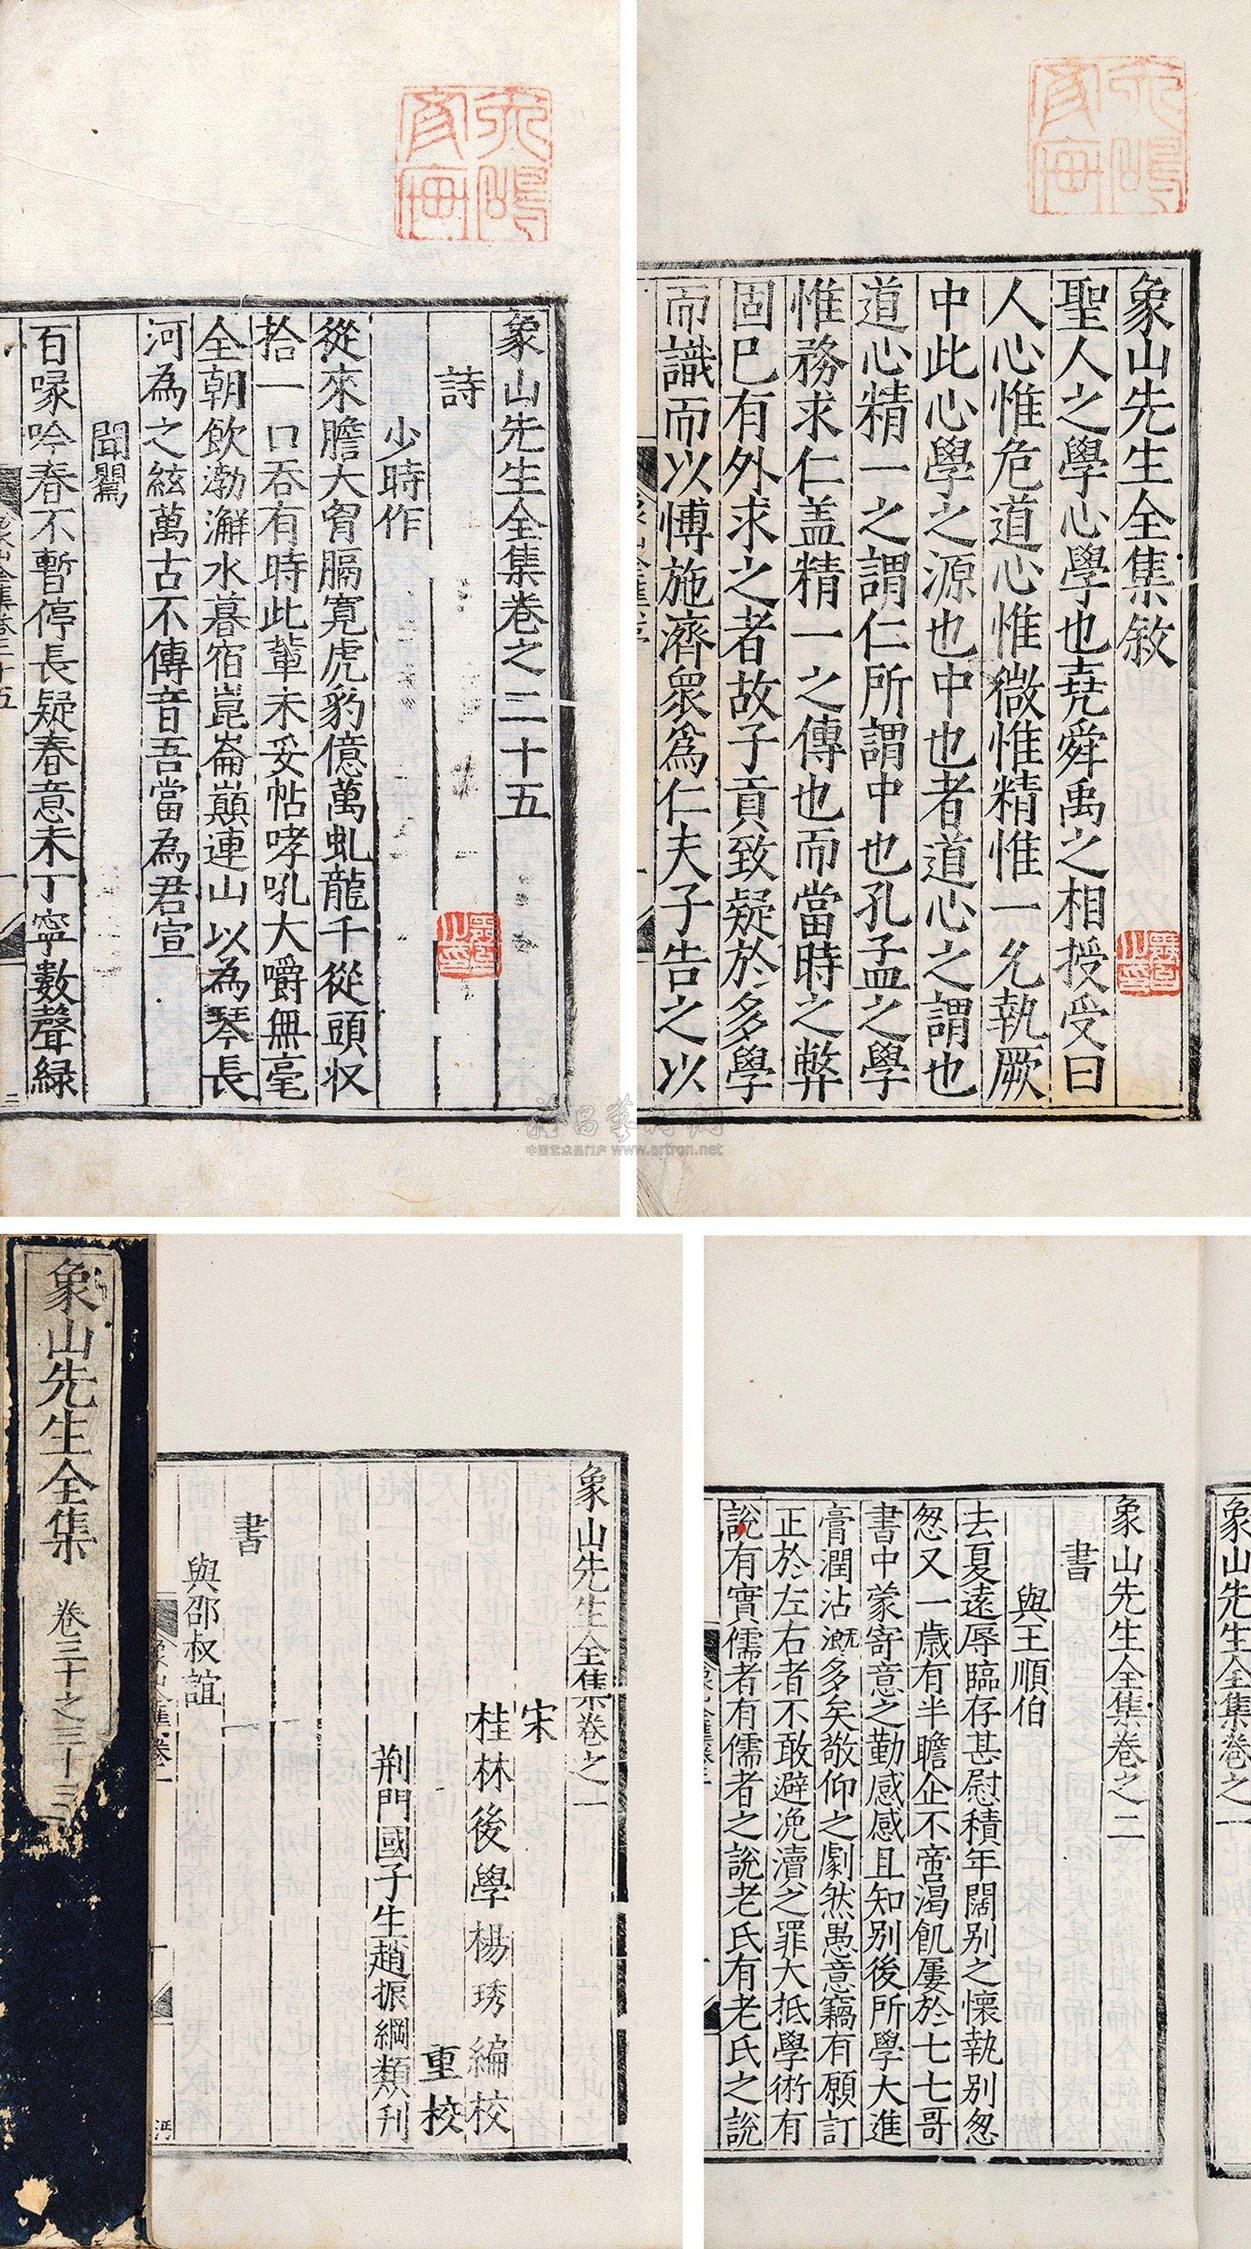 象山先生全集敘
聖人之學心學也堯舜禹之相授受曰
人心惟危道心惟微惟精惟一允執厥
中此心學之源也中也者道心之謂也
道心精一之謂仁所謂中也孔孟之學
惟務求仁盖精一之傳也而當時之弊
固已有外求之者故子貢致疑於多學
而識而以博施濟衆爲仁夫子告之以
象山先生全集卷之二十五
詩
少時作
從來膽大胷膈寛虎豹億萬虬龍千從頭収
拾一口吞有時此輩未妥帖哮吼大嚼無毫
全朝飲渤澥水暮宿崑崙巔連山以為琴長
河為之絃萬古不傳音吾當為君宣
聞鶯
百喙吟春不暫停長疑春意未丁寧數聲緑
二
www.artron.net
象山先生全集卷之一
象山先生全集卷之二
書
與王順伯
去夏遠辱臨存甚慰積年闊别之懷執别怱
怱又一歲有半瞻企不啻渴飢屢於七七哥
書中蒙寄意之勤感感且知别後所學大進
膏潤沾溉多矣敬仰之劇然愚意竊有願訂
正於左右者不敢避浼瀆之罪大抵學術有
說有實儒者有儒者之說老氏有老氏之說
象山先生全集卷之一
宋
桂林後學楊琇編校
重校
荆門國子生趙振綱類刋
書
與邵叔誼
象山先生全集 卷三十之三十三